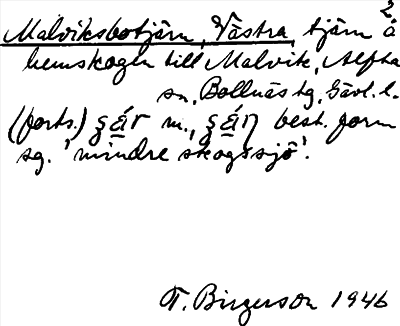 2
Malviksbotjärn, Västra, tjärn å
hemskogen till Malvik, Alfta
sn, Bollnäs tg, Gävl. l.
(forts.) ʂär m., ʂäɳ best. form
sg. 'mindre skogssjö'.
T. Birgerson 1946